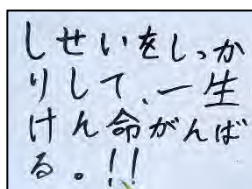 しせいをしっか
りして、一生
けん命がんば
る。!!